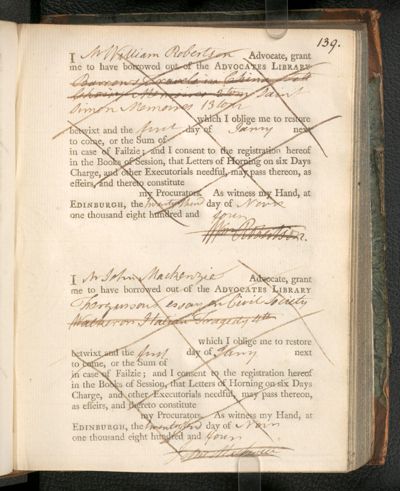 139.
I Mr William Robertson Advocate, grant
me to have borrowed out of the ADVOCATES LIBRARY
Barrow's Travels in China
Memoires St
Simon Memoires 13 tom
which I oblige me to restore
betwixt and the first day of Janry next
to come, or the Sum of
in case of Failzie; and I consent to the registration hereof
in the Books of Session, that Letters of Horning on six Days
Charge, and other Executorials needful, may pass thereon, as
effeirs, and thereto constitute
my Procurators. As witness my Hand, at
EDINBURGH, the day of Novr
one thousand eight hundred and four
Wm Robertson.
I Mr John Mackenzie Advocate, grant
me to have borrowed out of the ADVOCATES LIBRARY
Fergusson's essay on Civil Society
Walker on Italian Tragedy 4to
which I oblige me to restore
betwixt and the first day of Janry next
to come, or the Sum of
in case of Failzie; and I consent to the registration hereof
in the Books of Session, that Letters of Horning on six Days
Charge, and other Executorials needful, may pass thereon, as
effeirs, and thereto constitute
my Procurators. As witness my Hand, at
EDINBURGH, the day of Novr
one thousand eight hundred and four